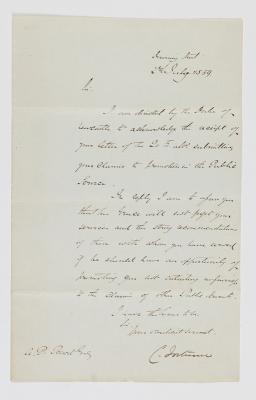 Downing Street
2nd July 1859
Sir,
I am directed by the Duke of
Newcastle to acknowledge the receipt of
your letter of the 20th ult submitting
your claims to promotion in the Public
Service.
In reply I am to assure you
that his Grace will not forget your
services and the strong recommendations
of those with whom you have served
if he should have an opportunity of
promoting you not intending unfairness
to the claims of other Public Servants.
I have the honor to be
Sir
your obedient servant
C. Fortescue